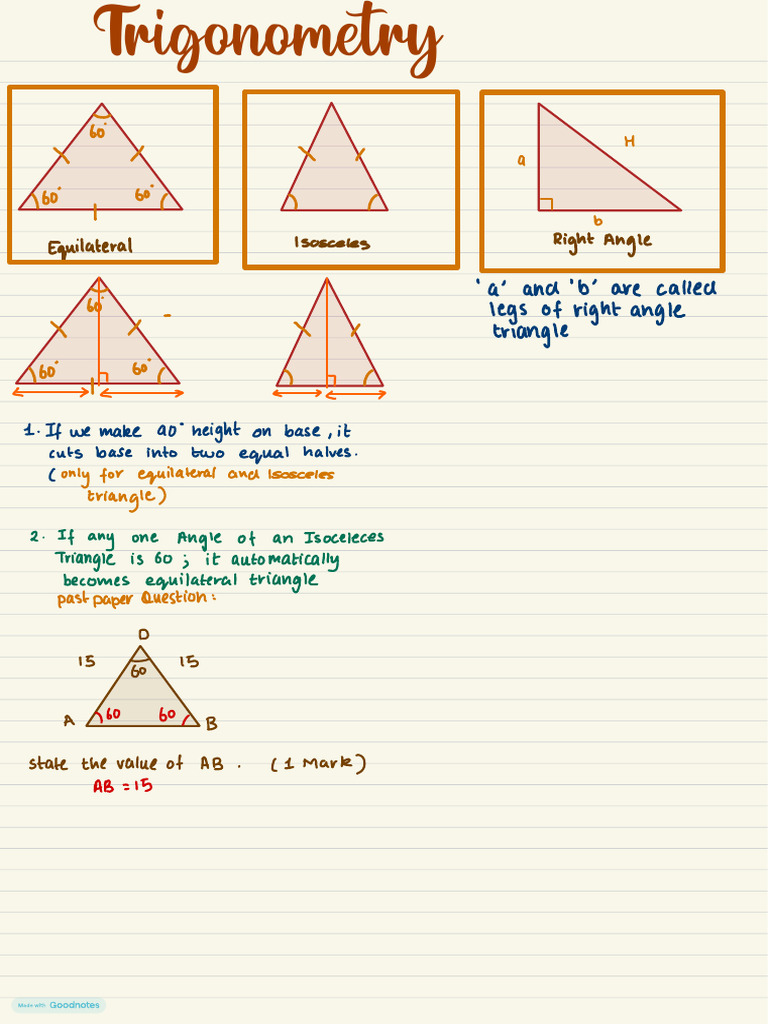 Trigonometry
60°
60°
60°
Equilateral
Isosceles
a
H
b
Right Angle
'a' and 'b' are called
legs of right angle
triangle
60°
60°
60°
1. If we make 90° height on base, it
cuts base into two equal halves.
(only for equilateral and Isosceles
triangle)
2. If any one Angle of an Isoceleces
Triangle is 60; it automatically
becomes equilateral triangle
past paper Question:
D
15
15
60
A
60
60
B
state the value of AB. (1 Mark)
AB = 15
Made with Goodnotes